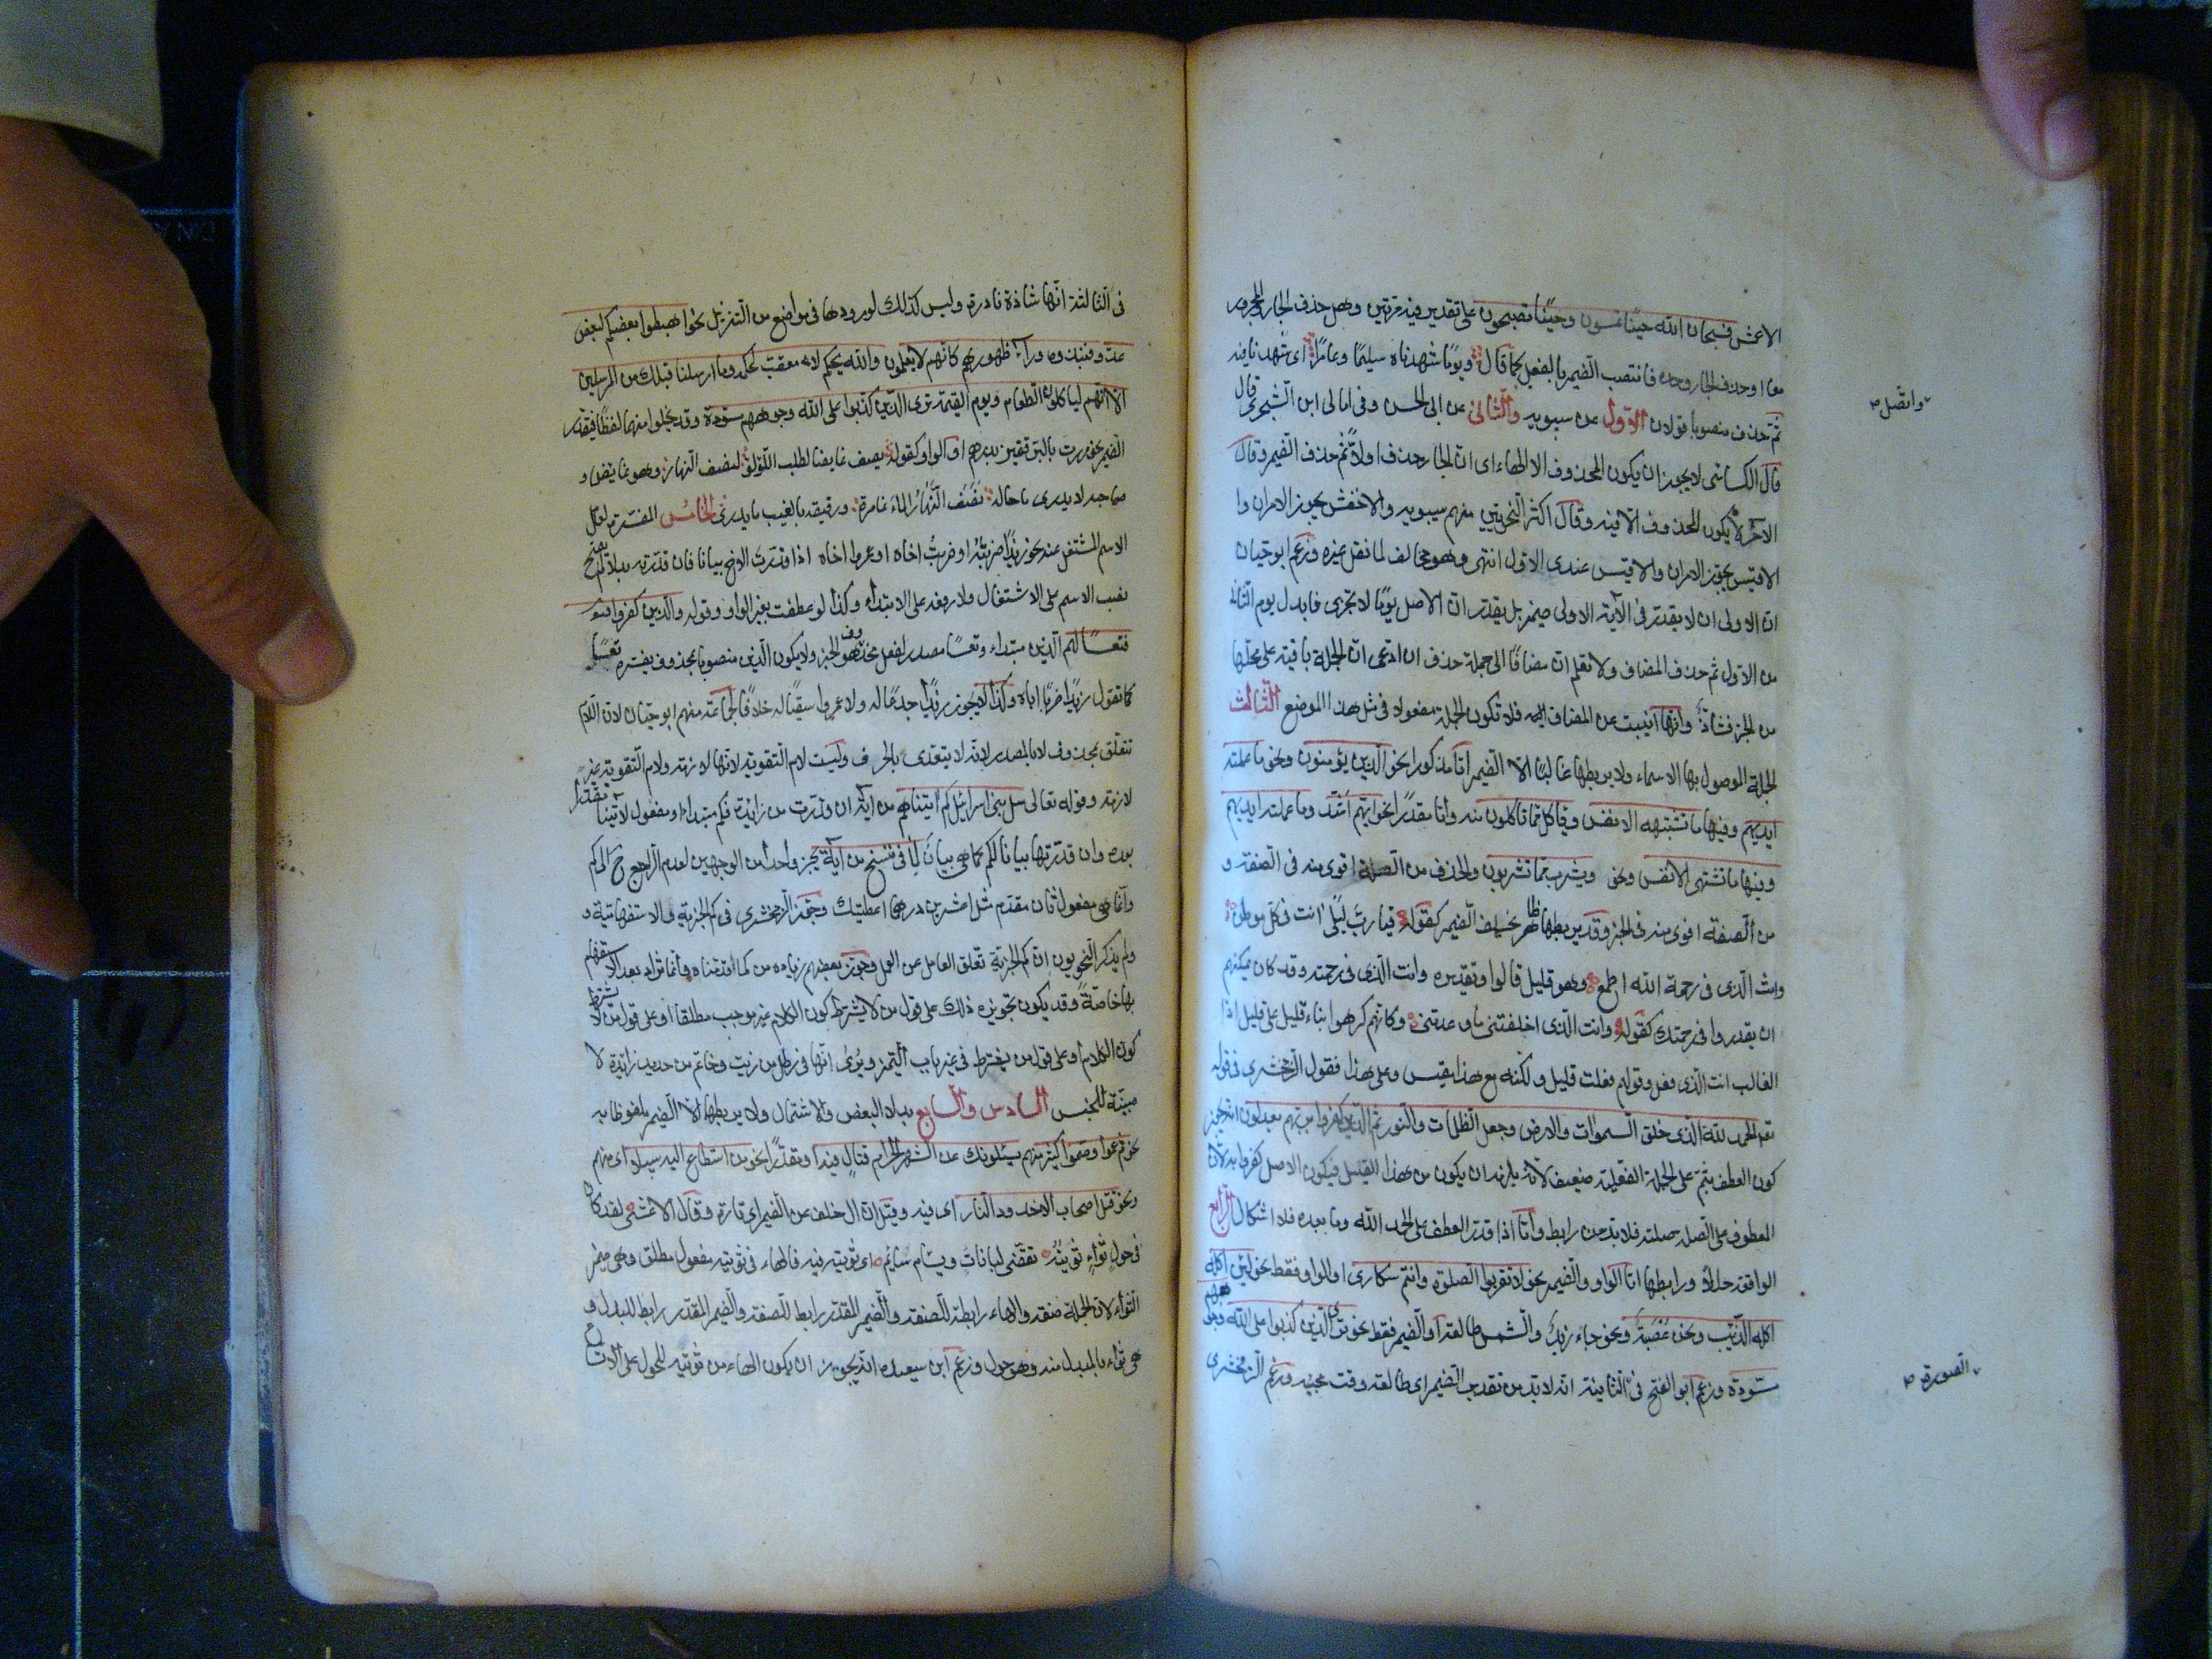 الاعمش فسبحان الله حينًا تمسون وحينًا تصبحون على تقدير فيه مرتين وهل حذف الجار والمجرور
معا او حذف الجار وحده فانتصب الضمير بالفعل كما قال ويومًا شهدناه سليمًا وعامرًا اى شهدنا فيه
ثمّ حذف منصوبا قولان الاوّل عن سيبويه والثانى عن ابى الحسن وفى امالى ابن الشجرى قال
قال الكسائى لا يجوز ان يكون المحذوف الا الهاء اى انّ الجار حذف اولًا ثم حذف الضمير وقال
الآخر لا يكون المحذوف الّا فيه وقال اكثر النحويّين منهم سيبويه والاخفش يجوز الامران وا
الاقيس يجوز الامران والاقيس عندى الاول انتهى وهو مخالف لما نقل غيره وزعم ابو حيان
انّ الاولى ان لا يقدر فى الآية الاولى ضمير بل يقدر انّ الاصل يومًا يوم لا تجزى فابدل يوم الثانى
من الاول ثم حذف المضاف ولا نعلم ان مضافًا الى جملة حذف ان ادعى انّ الجملة باقية على محلها
من الجر فشاذّ وانها انيبت عن المضاف اليه فلا تكون الجملة مفعولا فى مثل هذا الموضع الثالث
الجملة الموصول بها الاسماء ولا يربطها غالبًا الّا الضمير امّا مذكورا نحو الذين يؤمنون ونحو ما عملته
ايديهم وفيها ما تشتهيه الانفس وياكل مما تاكلون منه وامّا مقدّرًا نحو ايّهم اشدّ وما عملت ايديهم
وفيها ما تشتهى الانفس ونحو ويشرب ممّا تشربون والحذف من الصلة اقوى منه فى الصفة و
من الصفة اقوى منه فى الخبر وقد يربطها ظاهر يخلف الضمير كقوله فيا ربّ ليلى انت فى كلّ موطن
وانت الّذى فى رحمة الله اطمع وهو قليل قالوا وتقديره وانت الّذى فى رحمته وقد كان يمكنهم
ان يقدروا فى رحمتك كقوله وانت الّذى اخلفتنى ما وعدتنى وكانّهم كرهوا بناء قليل على قليل اذا
الغالب انت الّذى فعل وقولهم فعلت قليل ولكنه مع هذا مقيس وعلى هذا فقول الزمخشرى فى قوله
تع الحمد لله الّذى خلق السموات والارض وجعل الظلمات والنور ثمّ الّذين كفروا بربّهم يعدلون انه يجوز
كون العطف بثمّ على الجملة الفعلية ضعيف لانّه يلزمه ان يكون من هذا القليل فيكون الاصل كفروا به لانّ
المعطوف على الصلة صلة فلا بد من رابط وامّا اذا قدّر العطف على الحمد لله وما بعده فلا اشكال الرابع
الواقعة حالًا ورابطها امّا الواو والضمير نحو لا تقربوا الصلوة وانتم سكارى او الواو فقط نحو لئن اكله
اكله الذئب ونحن عصبة ونحو جاء زيد والشمس طالعة او الضمير فقط نحو ترى الّذين كذبوا على الله وجوههم
مسودّة وزعم ابو الفتح فى الثانية انّه لا بد من تقدير الضمير اى طالعة وقت مجيئه وزعم الزمخشرى
واتصل ص
الصورة ص
فى الثالثة انّها شاذة نادرة وليس كذلك لورودها فى مواضع من التنزيل نحو اهبطوا بعضكم لبعض
عدو فنبذوه وراء ظهورهم كانّهم لا يعلمون والله يحكم لا معقب لحكمه وما ارسلنا قبلك من المرسلين
الّا انّهم لياكلون الطعام ويوم القيمة ترى الّذين كذبوا على الله وجوههم مسودة وقد يخلوا منهما لفظًا فيقدّر
الضمير نحو مررت بالبر قفيز بدرهم او الواو كقوله يصف غايصا لطلب اللؤلؤ انتصف النهار وهو غايص و
صاحبه لا يدرى ما حاله نصف النهار الماء غامره ورفيقه بالغيب ما يدرى الخامس المفسّرة لعامل
الاسم المشتغل عنه نحو زيدًا ضربته او ضربت اخاه او عمروا اخاه اذا قدّرت الاخ بيانا فان قدّرته بدلا لم يصح
نصب الاسم على الاشتغال ولا رفعه على الابتداء وكذا لو عطفت بغير الواو وقوله والّذين كفروا
فتعسًا لهم الّذين مبتداء وتعسًا مصدر لفعل محذوف هو الخبر ولا يكون الّذين منصوبا بمحذوف يفسّره تعسًا
كما تقول زيدًا ضربًا اياه وكذا لا يجوز زيدًا جدعًا له ولا عمروا سقيًا له خلافًا لجماعة منهم ابو حيّان لانّ اللام
تتعلّق بمحذوف لا بالمصدر لانّه لا يتعدّى بالحرف وليست لام التقوية لانّها لازمة ولام التقوية غير
لازمة وقوله تعالى سل بنى اسرائيل كم آتيناهم من آية ان قدّرت من زايدة فكم مبتداء او مفعول لآتينا مقدرا
بعده وان قدّرتها بيانا لكم كما هى بيان لما فى ننسخ من آية لم يجز واحد من الوجهين لعدم الراجع ح الى كم
وانّما هى مفعول ثان مقدّم مثل اعشرين درهما اعطيتك وجوّز الزمخشرى فى كم الخبرية والاستفهامية و
ولم يذكر النحويون ان كم الخبرية تعلق العامل عن العمل وجوّز بعضهم زيادة من كما قدّمناه وانّما تزاد بعد الاستفهام
بها خاصّة وقد يكون تجويزه ذلك على قول من لا يشترط كون الكلام غير موجب مطلقا او على قول من لا يشترط
كون الكلام وعلى قول من يشترط فى غير باب التميز ويرى انّها فى رطل من زيت وخاتم من حديد زايدة لا
مبيّنة للجنس السادس والسابع بدلا البعض والاشتمال ولا يربطهما الّا الضمير ملفوظا به
نحو ثم عموا وصمّوا كثير منهم يسئلونك عن الشهر الحرام قتال فيه او مقدّرًا نحو من استطاع اليه سبيلا اى منهم
ونحو قتل اصحاب الاخدود النار اى فيه وقيل انّ ال خلف عن الضمير اى ناره وقال الاعشى لقد كان
فى حول ثواء ثويته تقضّى لبانات ويسأم سائم اى ثويته فيه فالهاء فى ثويته مفعول مطلق وهى ضمير
الثواء لانّ الجملة صفته والهاء رابطة الصفة والضمير المقدّر رابط للصفة والضمير المقدّر رابط للبدل و
هو ثواء بالمبدل منه وهو حول وزعم ابن سيده انّه يجوز ان يكون الهاء من ثويته للحول على الاتساع